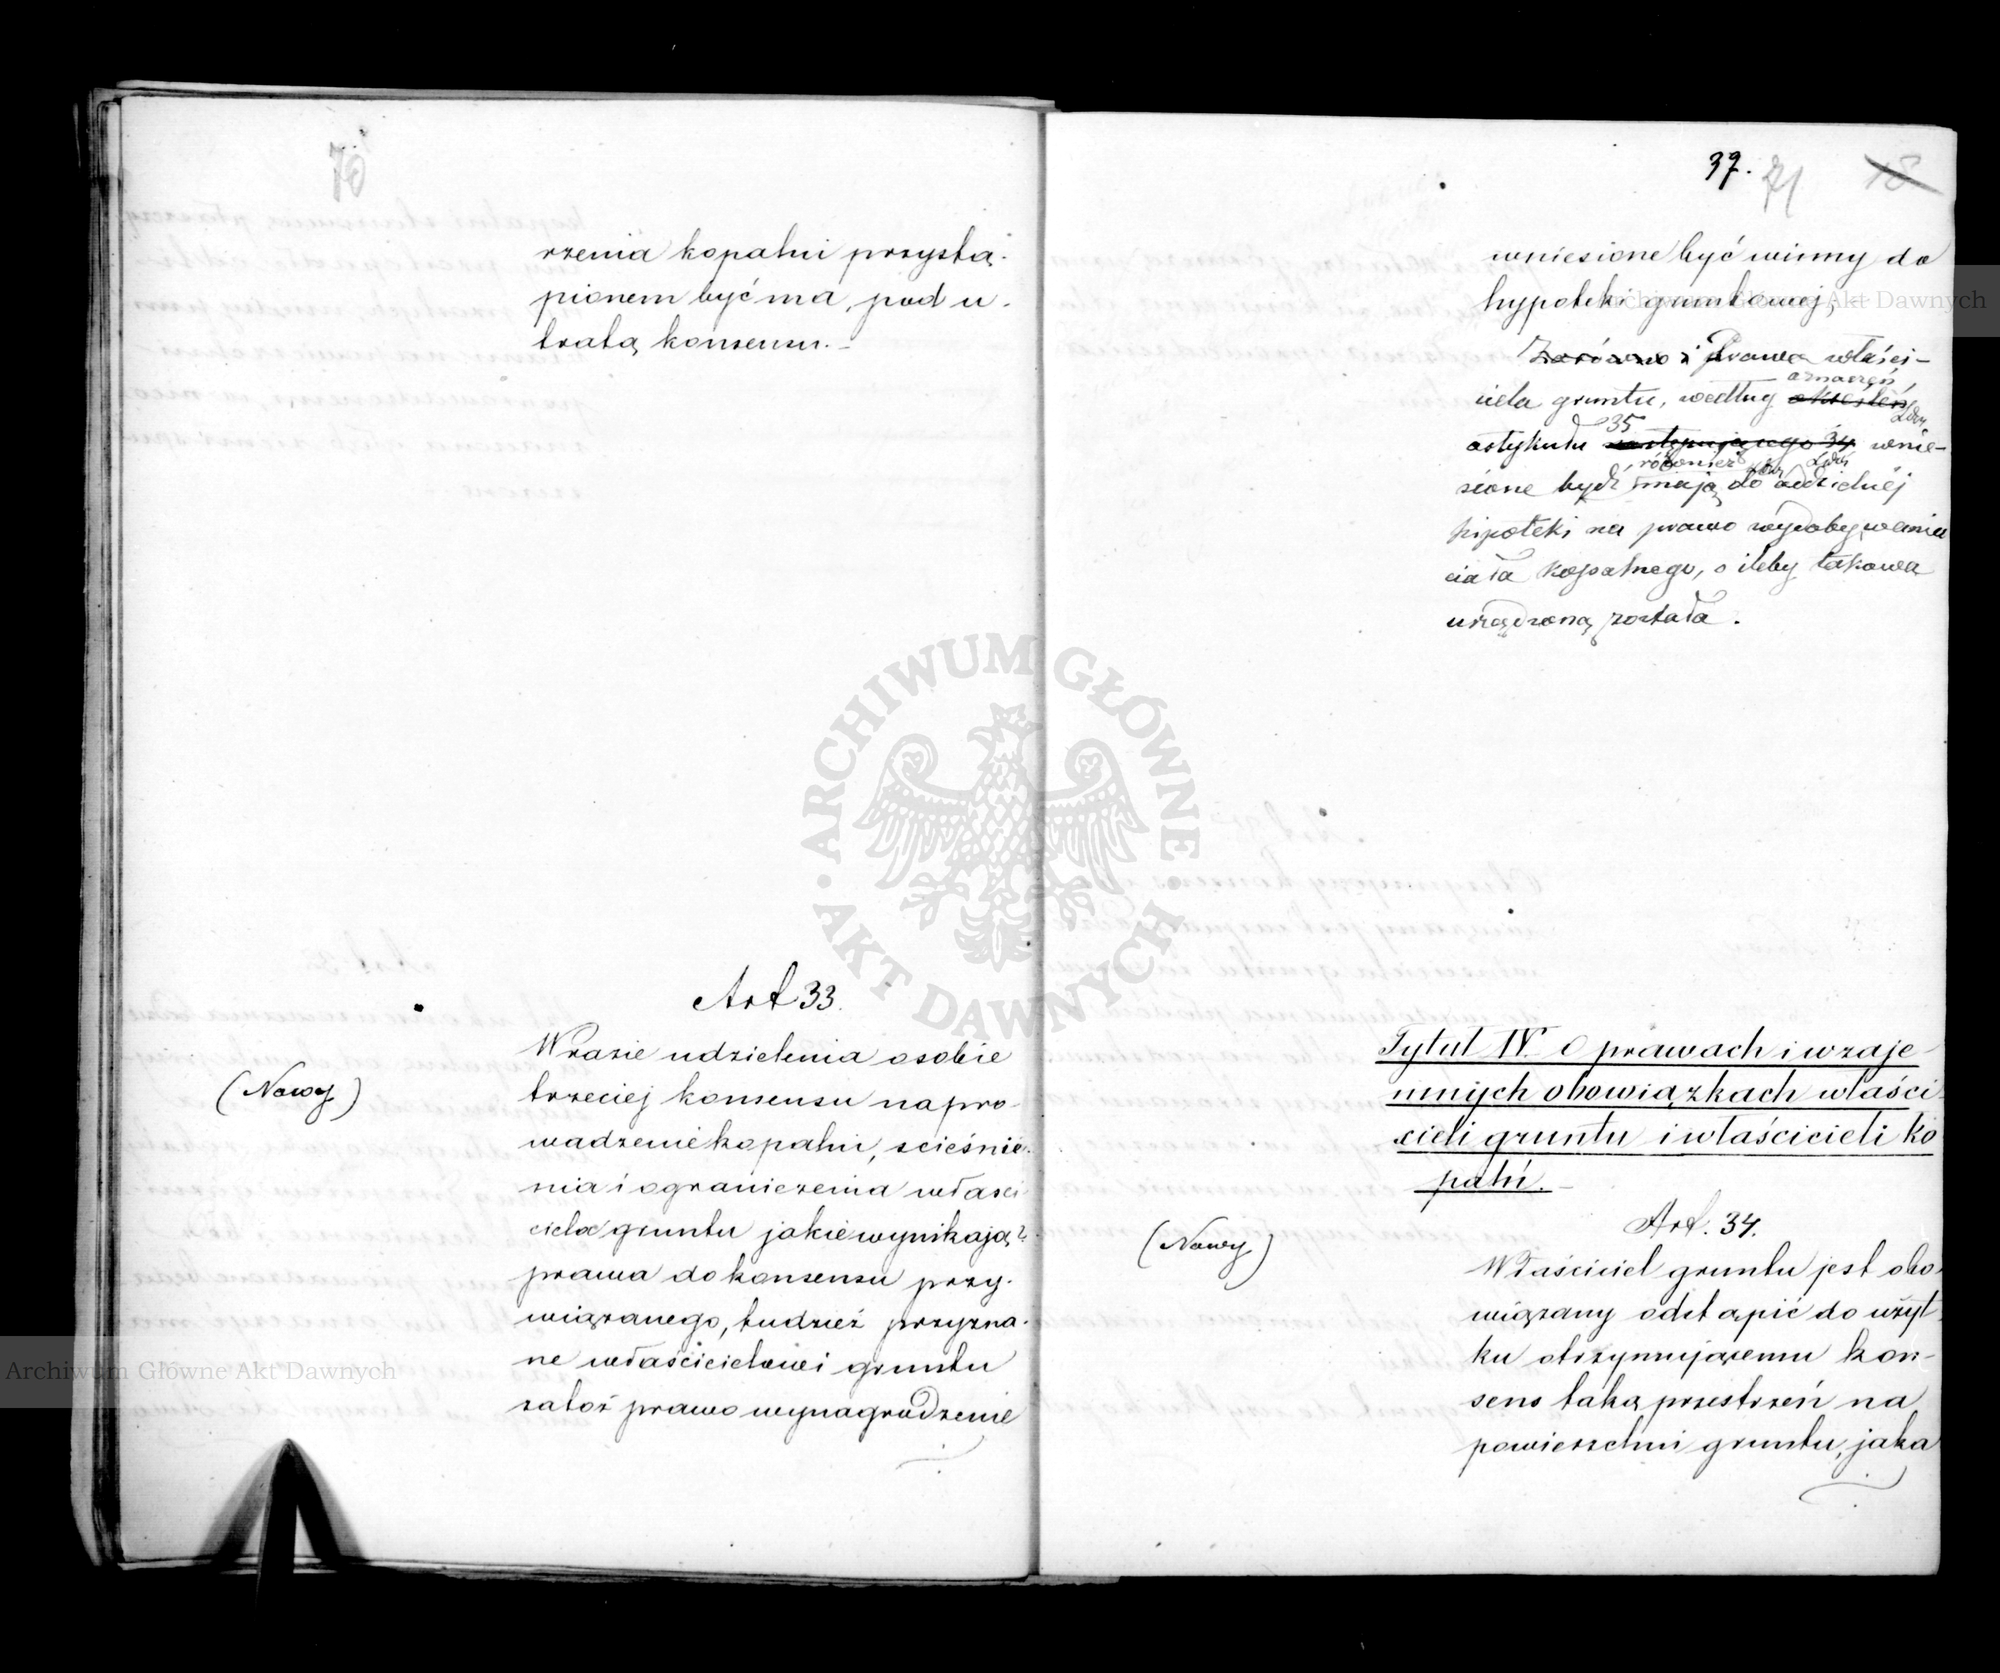 70
rzenia kopalni przystą-
pionem być ma, pod u-
tratą konsensu.-
Art 33.
(Nowy)
W razie udzielenia osobie
trzeciej konsensu na pro-
wadzenie kopalni, ścieśnie-
nia i ograniczenia właści
ciela gruntu jakie wynikają z
prawa do konsensu przy-
wiązanego, tudzież przyzna-
ne właścicielowi gruntu
zatoż prawo wynagrodzenie
37. 71 18
wniesione być winny do
hypoteki gruntowej,
Zarówno i Prawa właści-
ciela gruntu, według określeń
oznaczeń,
artykułu następującego 34 wnie-
35
sione być mają do oddzielnéj
również
hipoteki na prawo wydobywania
ciała kopalnego, o ileby takowa
urządzoną została.
Tytuł IV. O prawach i wzaje-
mnych obowiązkach właści-
cieli gruntu i właścicieli ko
palń.-
Art. 34.
(Nowy)
Właściciel gruntu jest obo-
wiązany odstąpić do użyt-
ku otrzymującemu kon-
sens taką przestrzeń na
powierzchni gruntu, jaka
ARCHIWUM GŁÓWNE AKT DAWNYCH
Archiwum Główne Akt Dawnych
Archiwum Główne Akt Dawnych